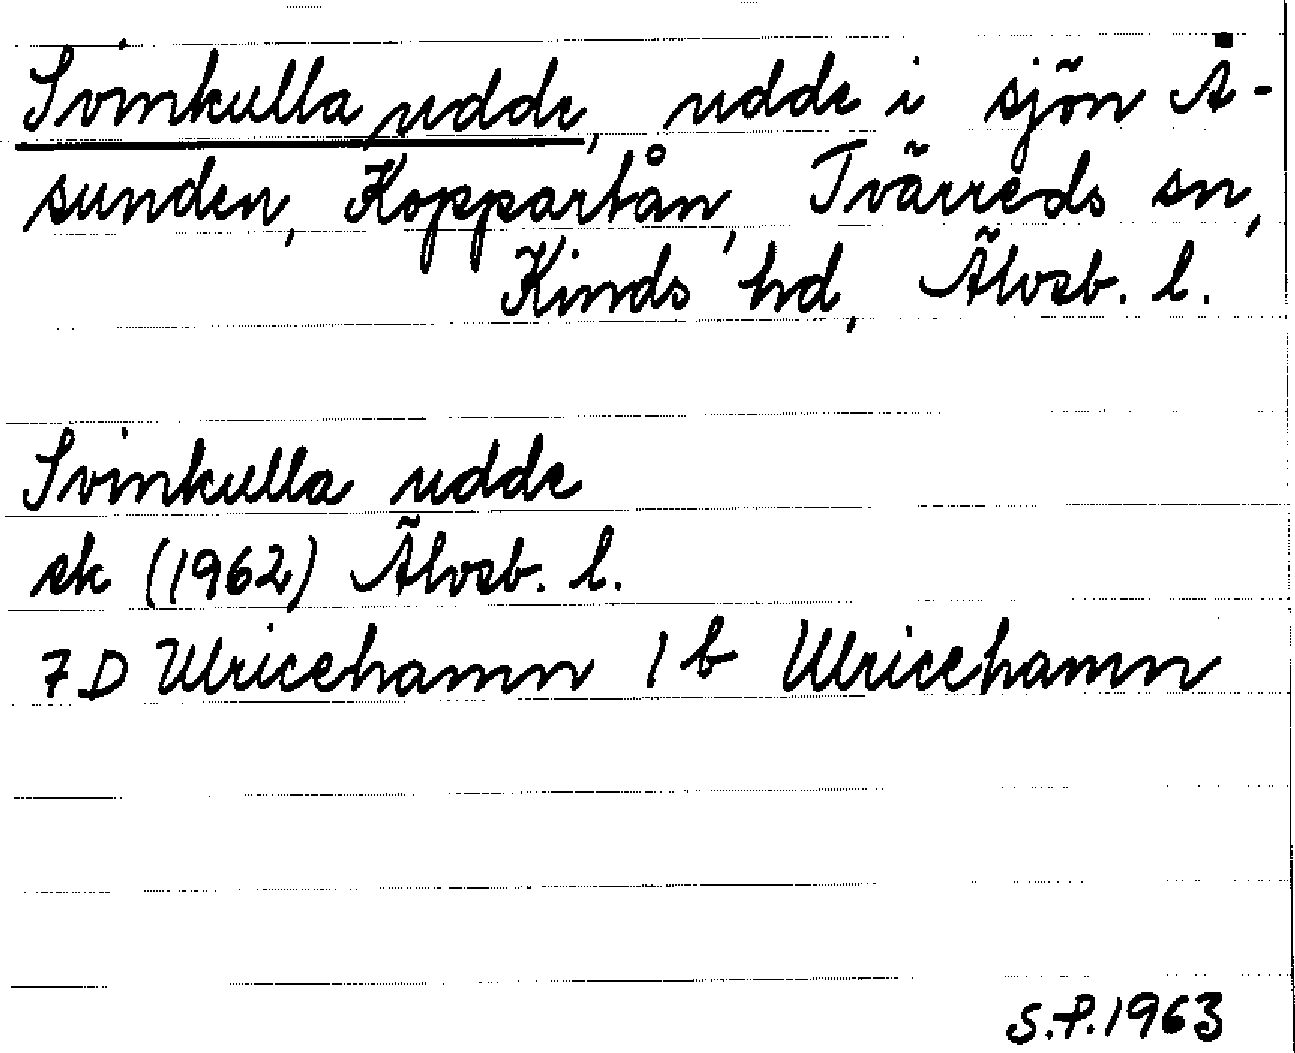 Svinkulla udde, udde i sjön Å-
sunden, Koppartån, Tvärreds sn,
Kinds hd, Älvsb. l.
Svinkulla udde
ek (1962) Älvsb. l.
7 D Ulricehamn 1 b Ulricehamn
S.P. 1963